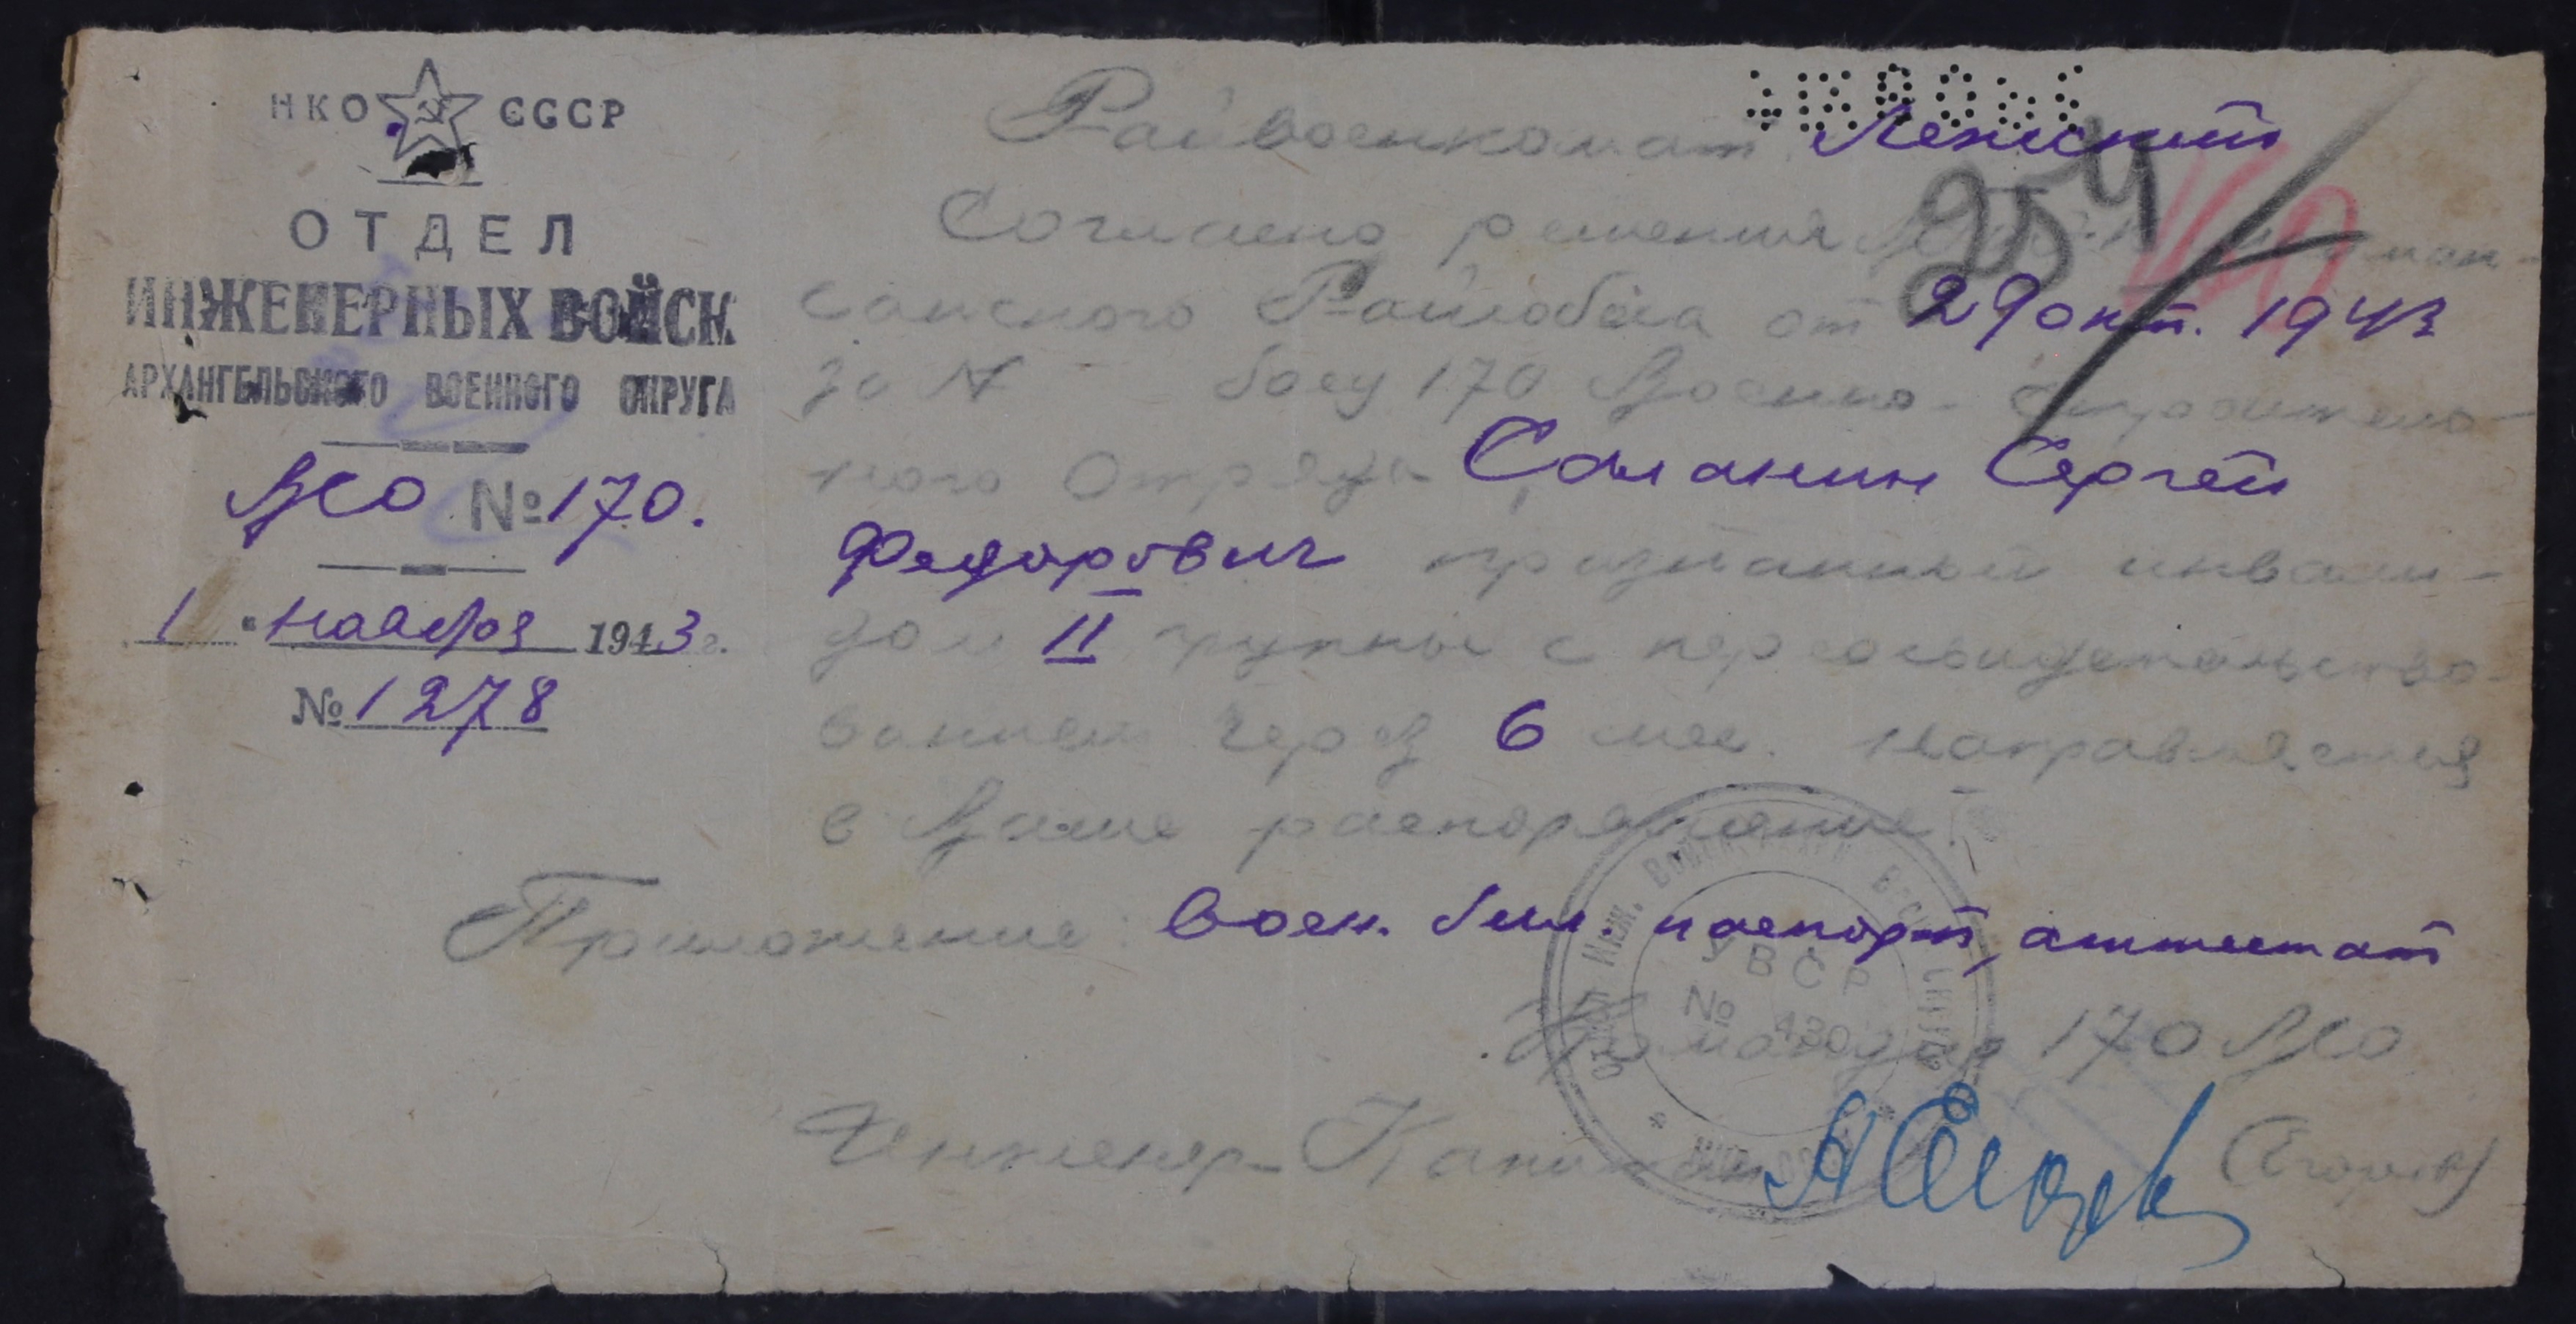 НКО СССР
ОТДЕЛ
ИНЖЕНЕРНЫХ ВОЙСК
АРХАНГЕЛЬСКОГО ВОЕННОГО ОКРУГА
ВСО № 170.
1 " ноября 1943 г.
№ 1278
Райвоенкомат Ленский
254
Согласно решения
Райсобеса от 29 окт. 1943
за № – бойцу 170 Военно-строитель-
ного Отряда Саланин Сергей
Федорович признанный инвали-
дом II группы с переосвидетельство-
ванием через 6 мес. направляется
в Ваше распоряжение
Приложение: Воен. бил. паспорт, аттестат
Командир 170 ВСО
Инженер-Капитан (Егоров)
УВСР
№ 430